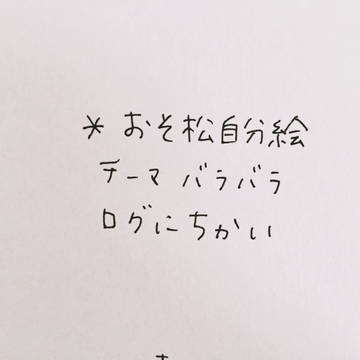 * おそ松自分絵
テーマ バラバラ
ログにちかい